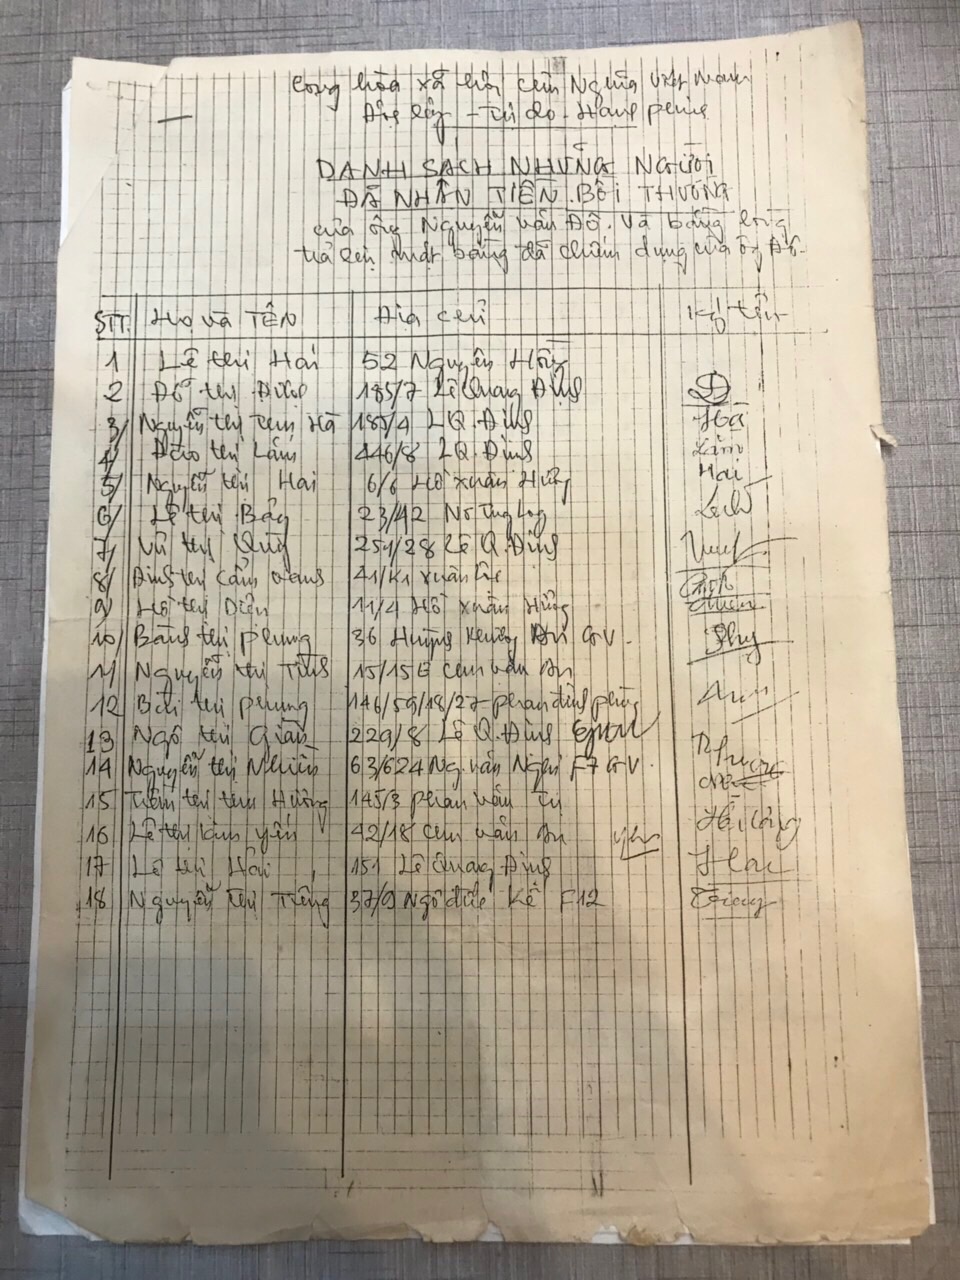 Cộng hòa xã hội chủ Nghĩa Việt Nam
Độc lập - Tự do - Hạnh phúc
DANH SÁCH NHỮNG NGƯỜI
ĐÃ NHẬN TIỀN BỒI THƯỜNG
của ông Nguyễn văn Đô. Và bằng lòng
trả lại mặt bằng đã chiếm dụng của ôg Đô.
STT. Họ và TÊN Địa chỉ Ký tên
1 Lê thị Hai 52 Nguyên Hồng
2 Đỗ thị Định 185/7 Lê Quang Định
3/ Nguyễn thị Hà 185/4 LQ. Định Hà
4/ Đào thị Lắm 446/8 LQ. Định Lắm
5/ Nguyễn thị Hai 6/6 Hồ xuân Hương Hai
6/ Lê thị Bảy 23/42
7/ Vũ thị Quý 251/28 Lê Q. Định
8/ Đinh thị Cẩm 41/K1
9/ Hồ thị Diên 11/4 Hồ xuân Hương
10/ thị phụng 36 Huỳnh Khương An GV.
11/ Nguyễn thị Tính 15/15E chu văn An
12 Bùi thị phụng 146/59/18/27 phan đình phùng
13 Ngô thị Giàu 229/8 Lê Q. Định
14 Nguyễn thị Nhiên 63/624 Ng. văn Nghi F7 GV.
15 thị thu Hương 145/3 phan văn Trị
16 Lê thị kim yến 42/18 chu văn An yến
17 Lê thị Hai 151 Lê Quang Định Hai
18 Nguyễn thị Tiếng 37/9 Ngô đức Kế F12 Tiếng